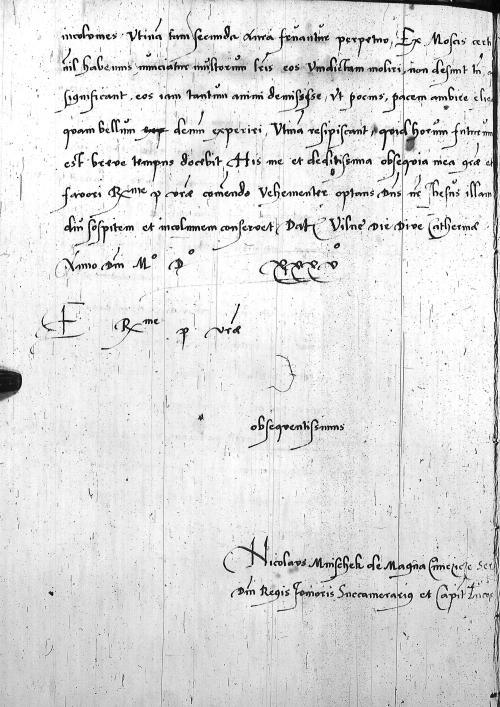 incolomes. Utinā tam secunda aura feruantur perpetuo, Ex Moscis certi
nil habemus nunciatur multorum lr̄is eos Vindictam moliri, non desunt tn̄
significant, eos iam tantum animi demisisse, ut potius, pacem ambire
quam bellum denuo experiri, Utinā resipiscant, quid horum futurum
est breve tempus docebit His me et deditissima obsequia mea gr̄æ et
favori R^me p vr̄æ com̄endo Vehementer optans, Dn̄s nr̄ Ihesus illam
diu sospitem et incolumem conservet, Dat Vilnæ Die Dive Catherinæ
Anno Dn̄i M° D° XXXV°
E R^me p vr̄æ
obsequentissimus
Nicolaus Mnischek de Magna
Dn̄i Regis Iunioris Succamerarius et Capit